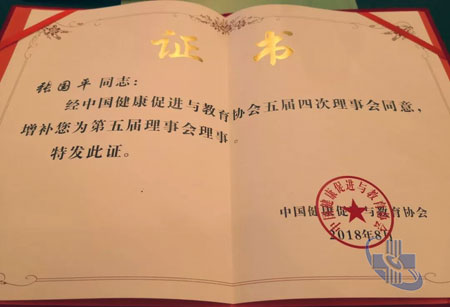 证书
张国平同志：
经中国健康促进与教育协会五届四次理事会同意，
增补您为第五届理事会理事
特发此证。
中国健康促进与教育协会
2018年8
中国健康促进与教育协会